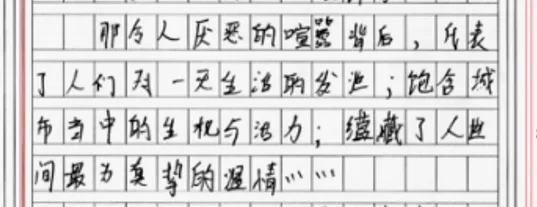 那令人厌恶的喧嚣背后，代表
了人们对一天生活的发泄；饱含城
市当中的生机与活力；蕴藏了人世
间最为真挚的温情……